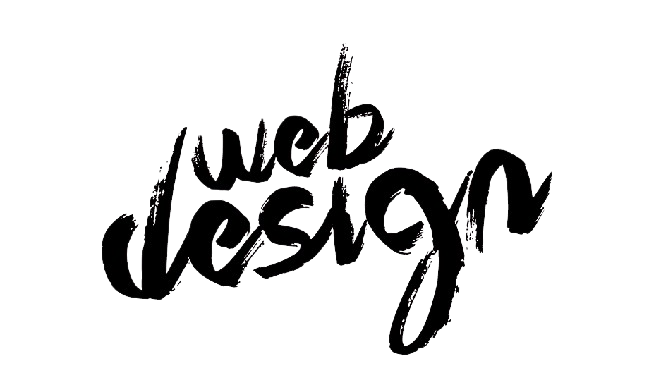 web
design